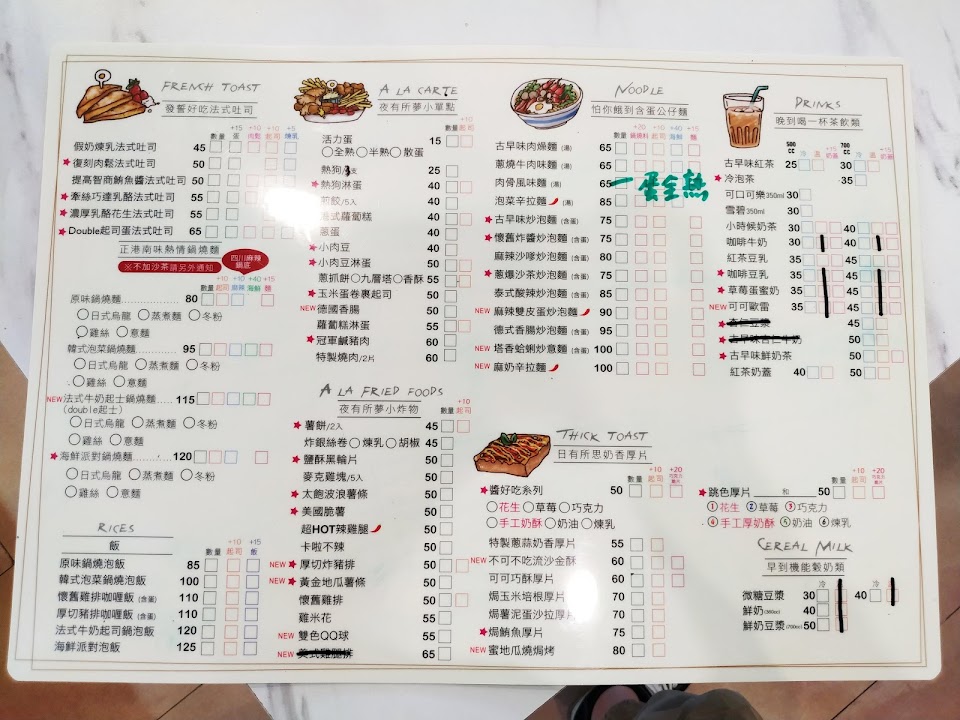 FRENCH TOAST
發誓好吃法式吐司
數量 +15蛋 +10肉鬆 +10起司 +5煉乳
假奶煉乳法式吐司 45
★復刻肉鬆法式吐司 50
提高智商鮪魚醬法式吐司 50
★牽絲巧達乳酪法式吐司 55
★濃厚乳酪花生法式吐司 55
★Double起司蛋法式吐司 65
正港南味熱情鍋燒麵
※不加沙茶請另外通知
四川麻辣鍋底
數量 +10起司 +10麻辣 +40海鮮 +15麵
原味鍋燒麵 80
○日式烏龍 ○蒸煮麵 ○冬粉
○雞絲 ○意麵
韓式泡菜鍋燒麵 95
○日式烏龍 ○蒸煮麵 ○冬粉
○雞絲 ○意麵
NEW 法式牛奶起士鍋燒麵 115
(double起士)
○日式烏龍 ○蒸煮麵 ○冬粉
○雞絲 ○意麵
★海鮮派對鍋燒麵 120
○日式烏龍 ○蒸煮麵 ○冬粉
○雞絲 ○意麵
RICES
飯
數量 +10起司 +15飯
原味鍋燒泡飯 85
韓式泡菜鍋燒泡飯 100
懷舊雞排咖喱飯(含蛋) 110
厚切豬排咖喱飯(含蛋) 110
法式牛奶起司鍋泡飯 120
海鮮派對泡飯 125
A LA CARTE
夜有所夢小單點
數量 +10起司
活力蛋 15
○全熟○半熟○散蛋
熱狗/3支 25
★熱狗淋蛋 40
煎餃/5入 40
港式蘿蔔糕 40
蔥蛋 40
★小肉豆 40
★小肉豆淋蛋 50
蔥抓餅○九層塔○香酥 55
★玉米蛋卷裹起司 50
NEW 德國香腸 50
蘿蔔糕淋蛋 55
★冠軍鹹豬肉 60
特製燒肉/2片 60
A LA FRIED FOODS
夜有所夢小炸物
數量 +10起司
★薯餅/2入 45
炸銀絲卷○煉乳○胡椒 45
★鹽酥黑輪片 50
麥克雞塊/5入 50
★太飽波浪薯條 50
★美國脆薯 50
超HOT辣雞腿 50
卡啦不辣 50
NEW ★厚切炸豬排 50
NEW ★黃金地瓜薯條 50
懷舊雞排 50
雞米花 55
NEW 雙色QQ球 55
NEW 美式雞腿排 65
NOODLE
怕你餓到含蛋公仔麵
數量 +20 +10起司 +40海鮮 +15麵
古早味肉燥麵(湯) 65
蔥燒牛肉味麵(湯) 65
肉骨風味麵(湯) 65
一蛋全熟
泡菜辛拉麵(湯) 85
★古早味炒泡麵(含蛋) 75
★懷舊炸醬炒泡麵(含蛋) 75
麻辣沙嗲炒泡麵(含蛋) 75
★蔥爆沙茶炒泡麵(含蛋) 75
泰式酸辣炒泡麵(含蛋) 85
NEW 麻辣雙皮蛋炒泡麵 90
德式香腸炒泡麵(含蛋) 95
NEW 塔香蛤蜊炒意麵(含蛋) 100
NEW 麻奶辛拉麵 100
THICK TOAST
日有所思奶香厚片
數量 +10起司 +20
★醬好吃系列 50
○花生○草莓○巧克力
○手工奶酥○奶油○煉乳
特製蔥蒜奶香厚片 55
NEW ★不可不吃流沙金酥 60
可可巧酥厚片 60
焗玉米培根厚片 70
焗薯泥蛋沙拉厚片 70
★焗鮪魚厚片 75
NEW 蜜地瓜燒焗烤 80
DRINKS
晚到喝一杯茶飲類
500cc 冷 溫 +15奶蓋 700cc 冷 溫 +15奶蓋
古早味紅茶 25 30
★冷泡茶 35
可口可樂350ml 30
雪碧350ml 30
小時候奶茶 30 40
咖啡牛奶 30 40
紅茶豆乳 35 45
★咖啡豆乳 35 45
★草莓蛋蜜奶 35 45
NEW 可可歐蕾 35 45
★杏仁豆漿 45
★古早味杏仁牛奶 50
★古早味鮮奶茶 50
紅茶奶蓋 40 50
數量 +10起司 +20
★跳色厚片 和 50
①花生 ②草莓 ③巧克力
④手工厚奶酥 ⑤奶油 ⑥煉乳
CEREAL MILK
早到機能穀奶類
冷 溫 冷 溫
微糖豆漿 30 40
鮮奶(360cc) 40
鮮奶豆漿(700cc) 50